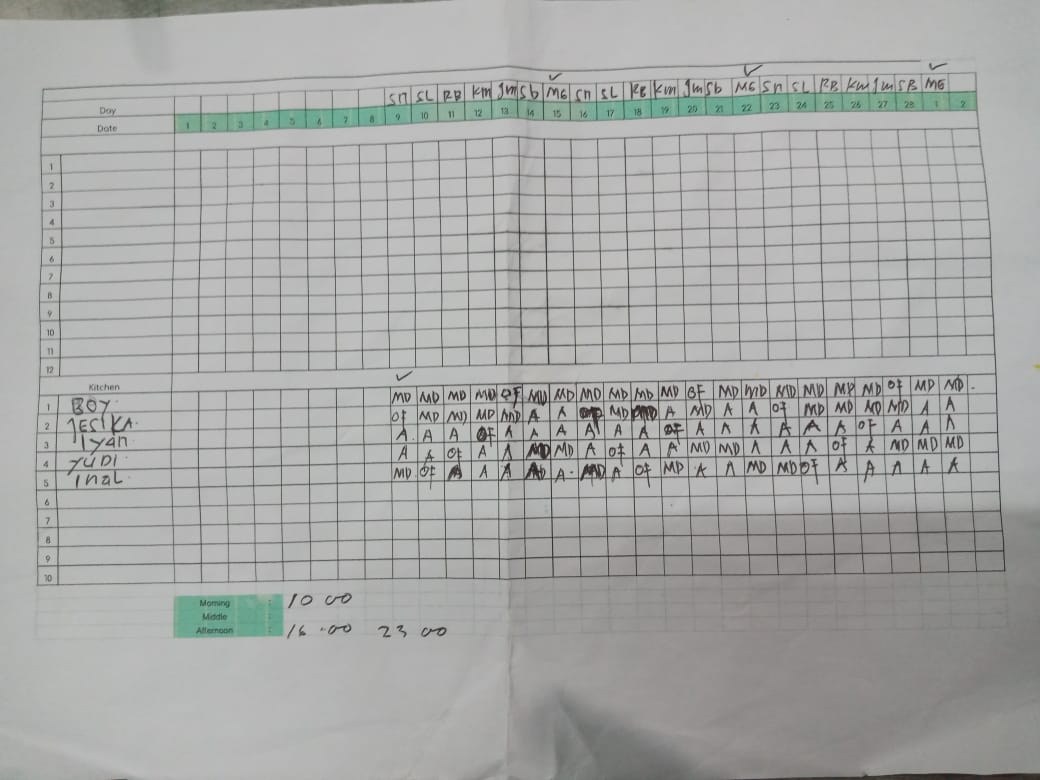 Day Sn SL RB Km Jm Sb MG Sn SL RB Km Jm Sb MG Sn SL RB Km Jm SB MG
Date 1 2 3 4 5 6 7 8 9 10 11 12 13 14 15 16 17 18 19 20 21 22 23 24 25 26 27 28 1 2
1
2
3
4
5
6
7
8
9
10
11
12
Kitchen
1 BOY MD MD MD MD OF MD MD MD MD MD MD OF MD MD MD MD MD MD OF MD MD
2 JESIKA OF MD MD MD MD A A MD A MD A A OF MD MD MD MD A A
3 Iyan A A A OF A A A A A A OF A A A A A A OF A A A
4 YUDI A A OF A A MD MD A OF A A MD MD A A A OF A MD MD MD
5 Inal MD OF A A A A A OF MD A A MD MD OF A A A A A
6
7
8
9
10
Morning : 10 00
Middle :
Afternoon : 16.00 23 00